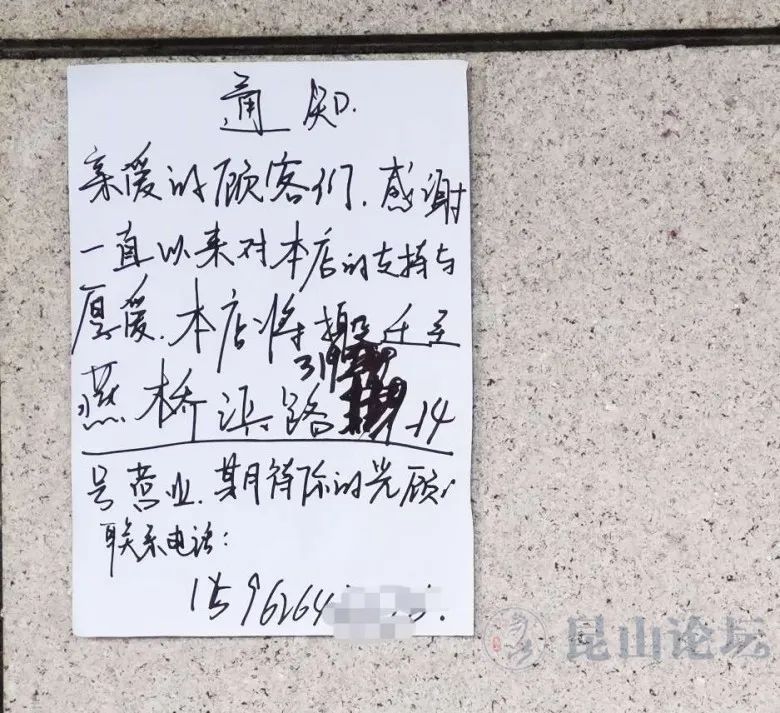 通知.
亲爱的顾客们.感谢
一直以来对本店的支持与
厚爱.本店将搬迁至
燕桥浜路319-14
号营业.期待你的光顾!
联系电话:
1596264
昆山论坛